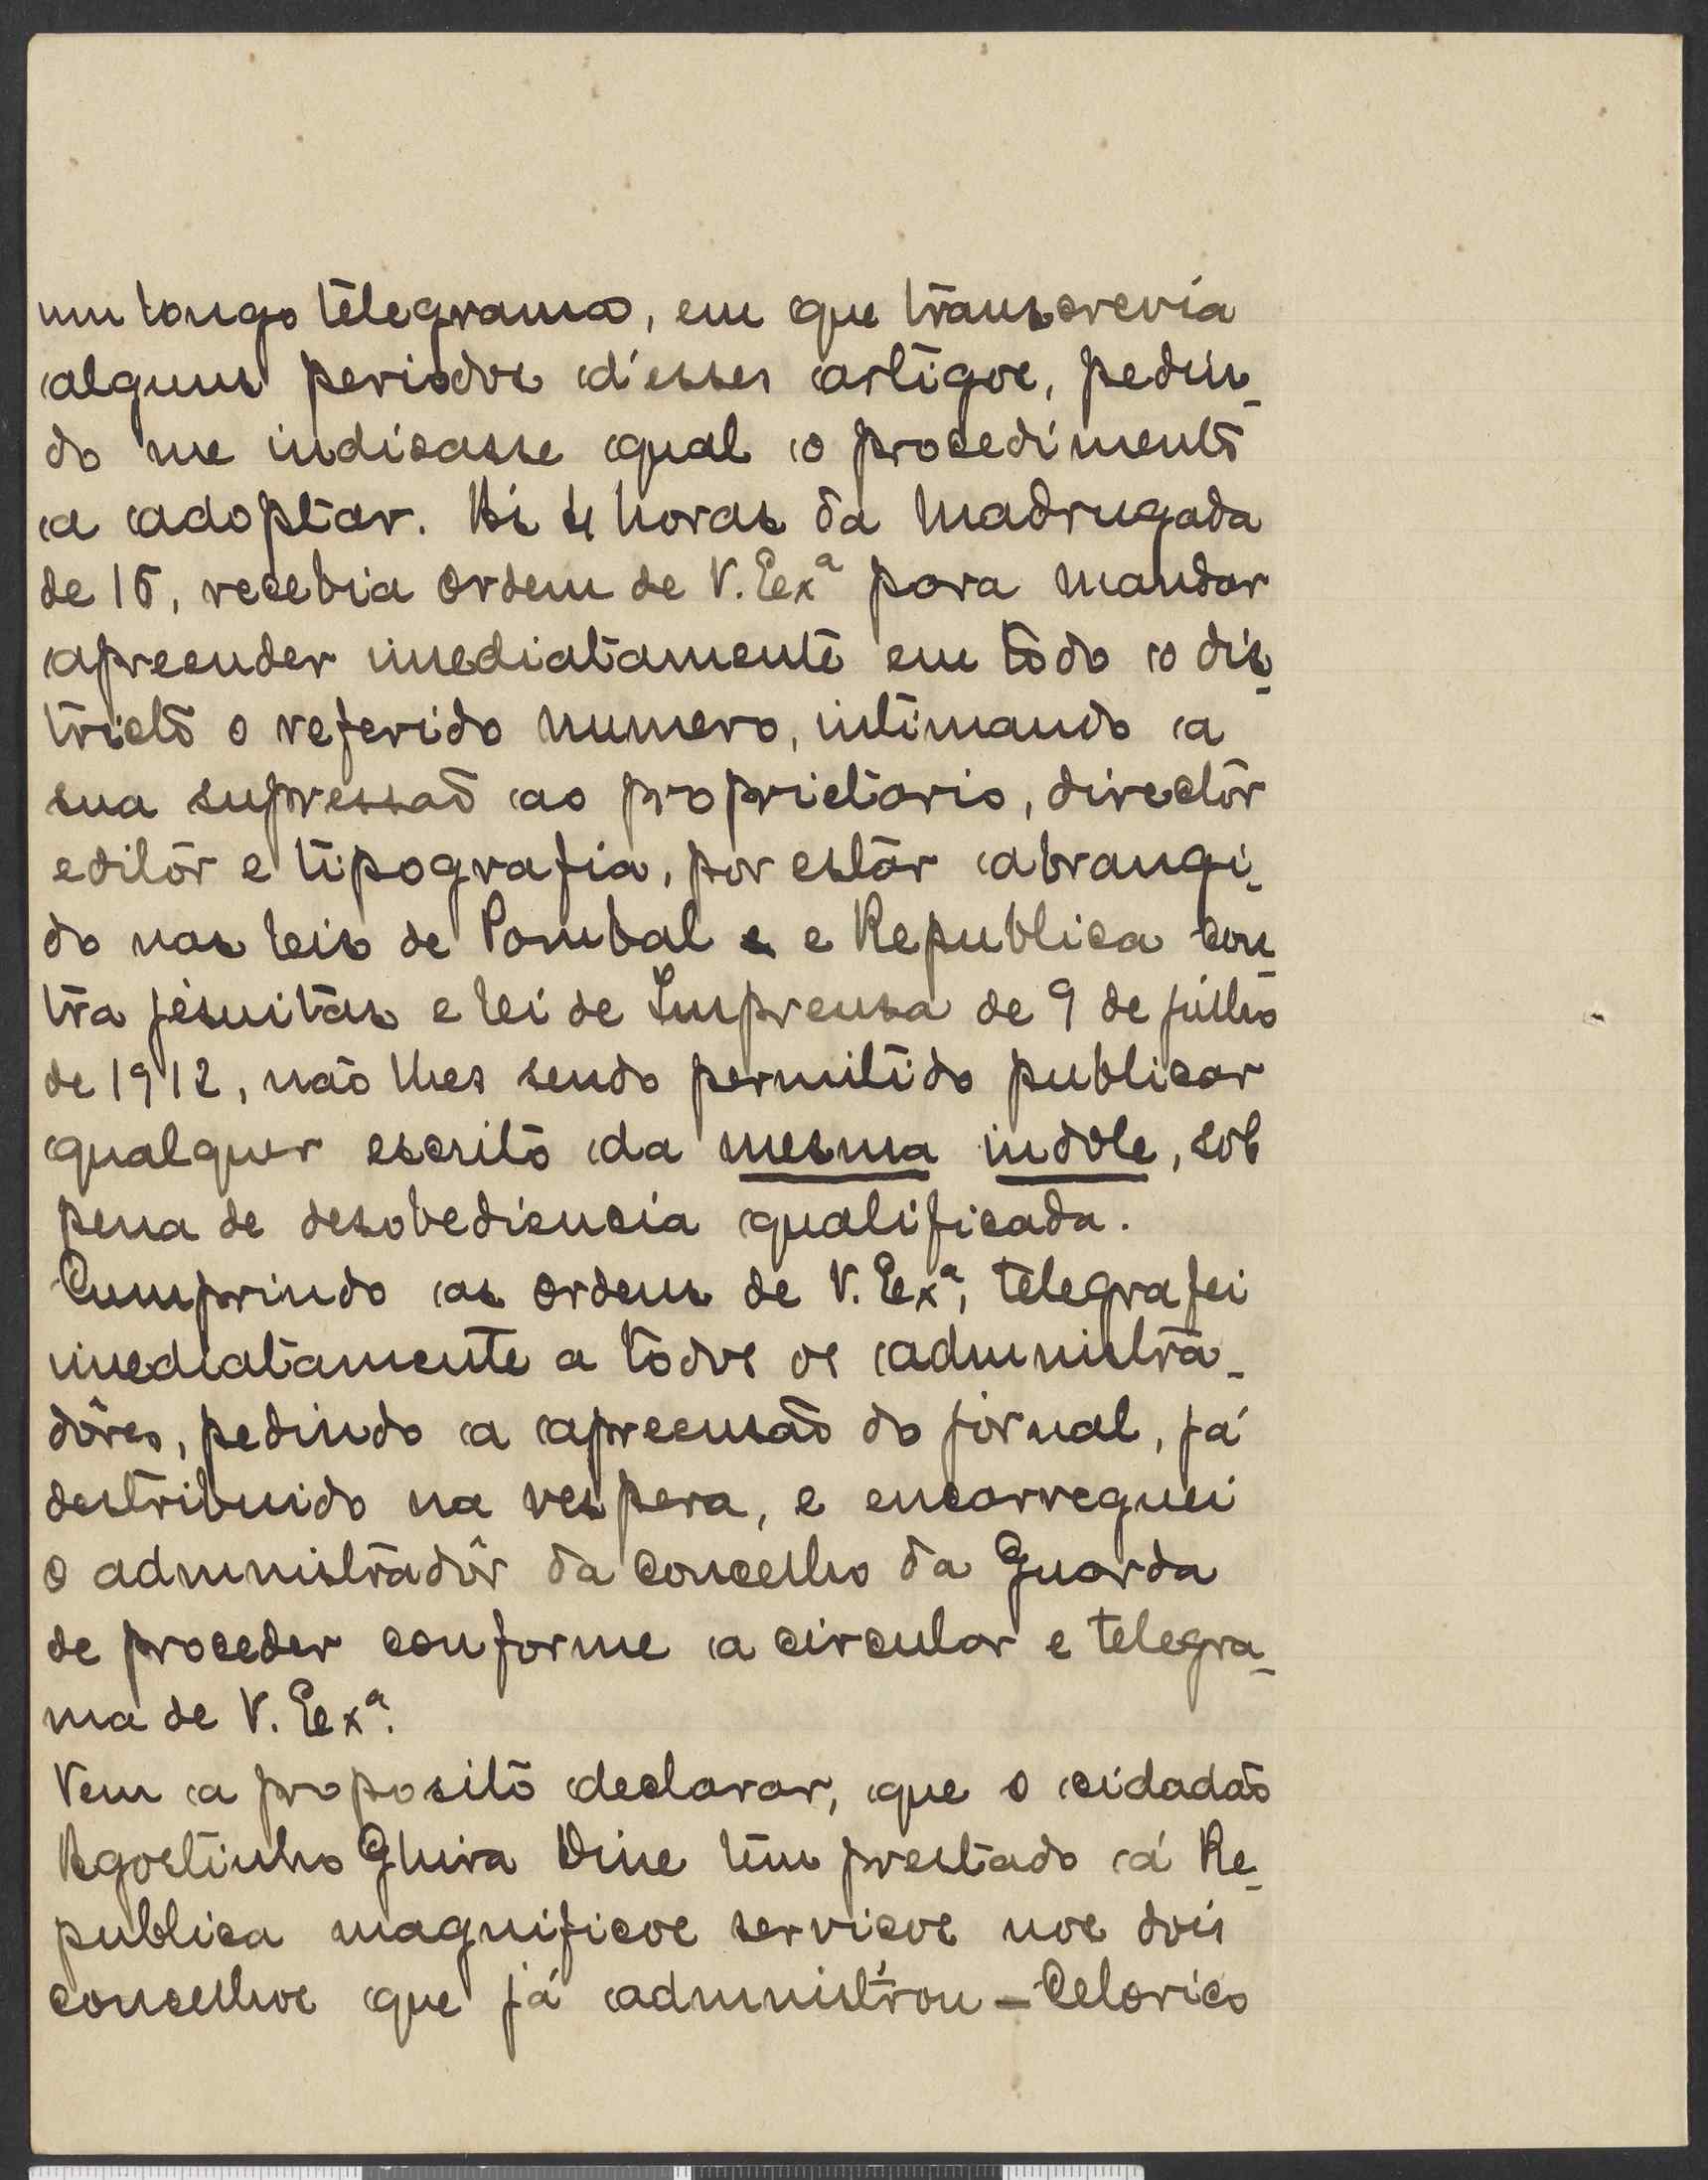 um longo telegrama, em que transcrevia
alguns periodos d'esses artigos, pedin-
do me indicasse qual o procedimento
a adoptar. Ás 4 horas da madrugada
de 15, recebia ordem de V. Exª para mandar
apreender imediatamente em todo o dis-
tricto o referido numero, intimando a
sua supressão ao proprietario, director
editôr e tipografia, por estar abrangi-
do nas leis de Pombal e Republica con-
tra jesuitas e lei de Imprensa de 9 de julho
de 1912, não lhes sendo permitido publicar
qualquer escrito da mesma indole, sob
pena de desobediencia qualificada.
Cumprindo as ordens de V. Exª, telegrafei
imediatamente a todos os administra-
dôres, pedindo a apreensão do jornal, já
destribuido na vespera, e encarreguei
o administradôr da concelho da Guarda
de proceder conforme a circular e telegra-
ma de V. Exª.
Vem a proposito declarar, que o cidadão
Agostinho Ghira Dine tem prestado á Re-
publica magnificos serviços nos dois
concelhos que já administrou - Celorico